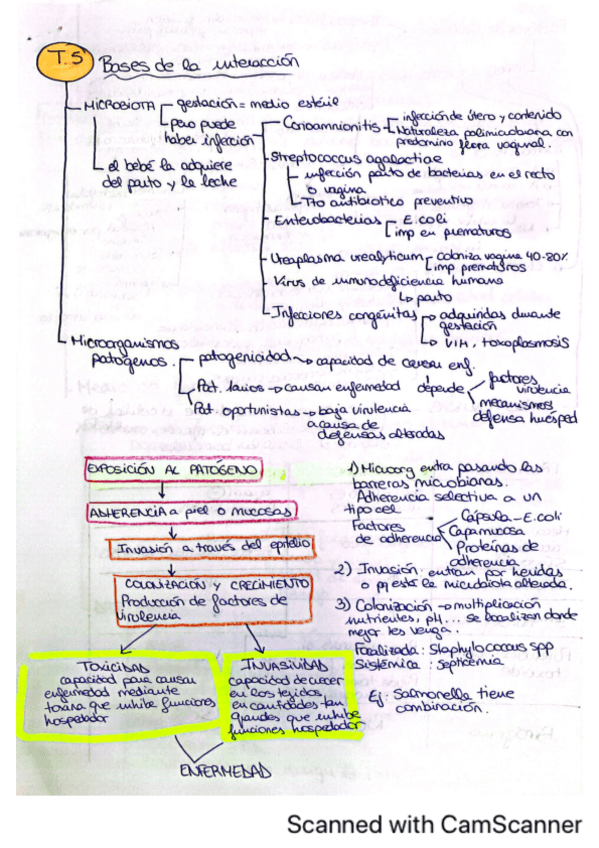 T.5 Bases de la interacción
MICROBIOTA
gestación = medio estéril
pero puede haber infección
el bebé la adquiere
del parto y la leche
Corioamnionitis
infección de útero y contenido
Naturaleza polimicrobiana con
predominio flora vaginal.
Streptococcus agalactiae
infección parto de bacterias en el recto
o vagina
Tto antibiotico preventivo
Enterobacterias
E.coli
imp en prematuros
Ureaplasma urealyticum
coloniza vagina 40-80%
imp prematuros
Virus de inmunodeficiencia humana
↳ parto
Infecciones congénitas
adquiridas durante
gestación
VIH, toxoplasmosis
Microorganismos
patógenos.
patogenicidad → capacidad de causar enf.
Pat. 1arios → causan enfermedad
depende
factores
virulencia
mecanismos
defensa huésped
Pat. oportunistas → baja virulencia
a causa de
defensas alteradas
EXPOSICIÓN AL PATÓGENO
ADHERENCIA a piel o mucosas
Invasión a través del epitelio
COLONIZACIÓN y CRECIMIENTO
Producción de factores de
virulencia
TOXICIDAD
capacidad para causar
enfermedad mediante
toxina que inhibe funciones
hospedador
INVASIVIDAD
capacidad de crecer
en los tejidos
en cantidades tan
grandes que inhibe
funciones hospedador
ENFERMEDAD
1) Microorg entra pasando las
barreras microbianas.
Adherencia selectiva a un
tipo cel
Factores
de adherencia
Cápsula - E.coli
Capa mucosa
Proteínas de
adherencia
2) Invasión: entran por heridas
o pq esté la microbiota alterada.
3) Colonización → multiplicación
nutrientes, pH... se localizan donde
mejor les venga.
Focalizada: Staphylococcus spp
Sistémica: Septicemia
Ej: Salmonella tiene
combinación.
Scanned with CamScanner